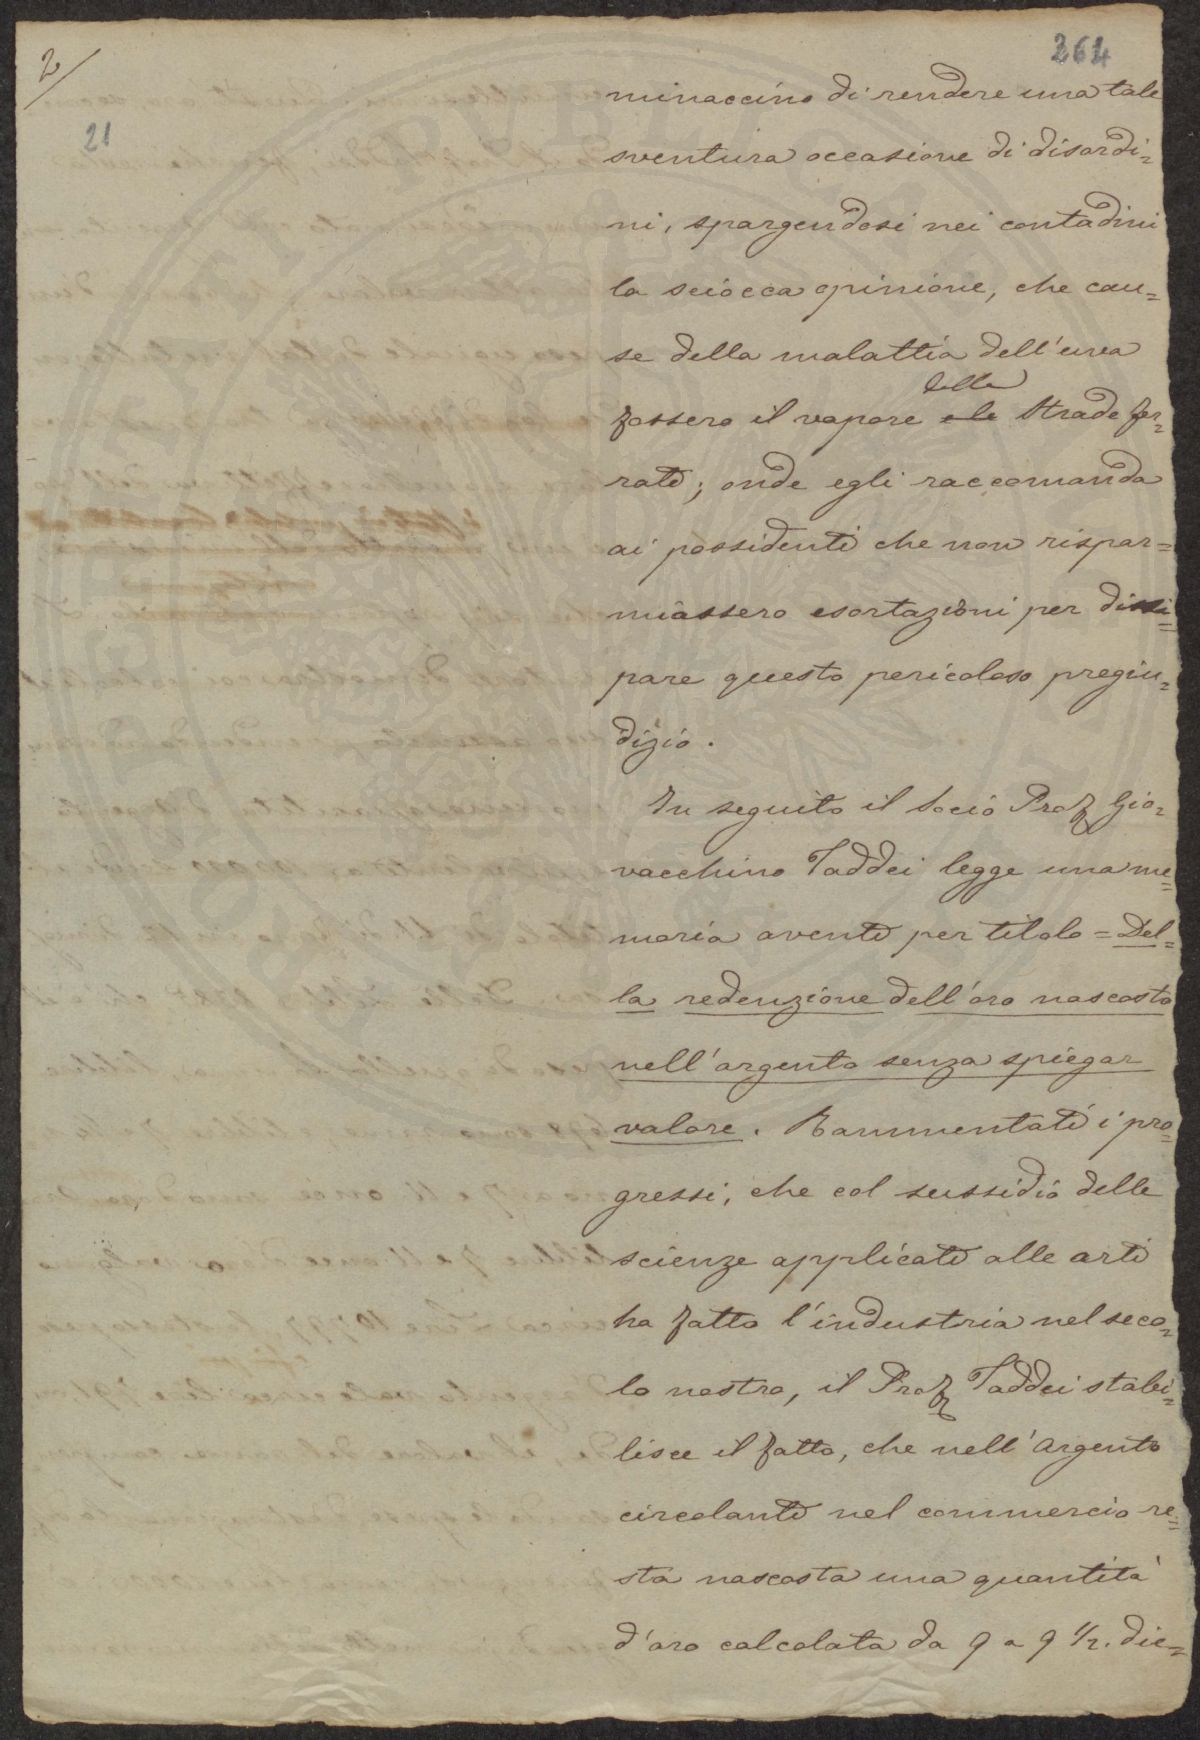 2/
264
21
minaccino di rendere una tale
sventura occasione di disordi=
ni, spargendosi nei contadini
la sciocca opinione, che cau=
se della malattia dell'uva
delle
fossero il vapore e le Strade fer=
rate; onde egli raccomanda
ai possidenti che non rispar=
miassero esortazioni per dissi=
pare questo pericoloso pregiu=
dizio.
In seguito il Socio Prof Gio=
vacchino Taddei legge una me=
moria avente per titolo = Del=
la redenzione dell'oro nascosto
nell'argento senza spiegar
valore. Rammentati i pro=
gressi, che col sussidio delle
scienze applicate alle arti
ha fatto l'industria nel seco=
lo nostro, il Prof Taddei stabi=
lisce il fatto, che nell'Argento
circolante nel commercio re=
sta nascosta una quantità
d'oro calcolata da 9 a 9 1/2. die=